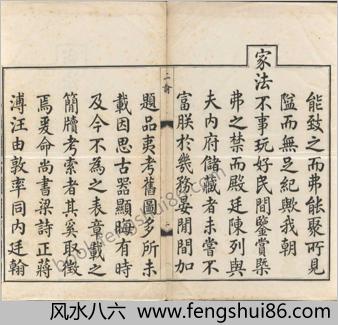 能致之而弗能聚所見
隘而無足紀歟我朝
家法不事玩好民間鑒賞槩
弗之禁而殿廷陳列與
夫内府儲藏者未嘗不
富朕於幾務晏閒間加
題品夷考舊圖多所未
載因思古器顯晦有時
及今不為之表章載之
簡牘考索者其奚取徵
焉爰命尚書梁詩正蔣
溥汪由敦率同内廷翰
风水八六 www.fengshui86.com